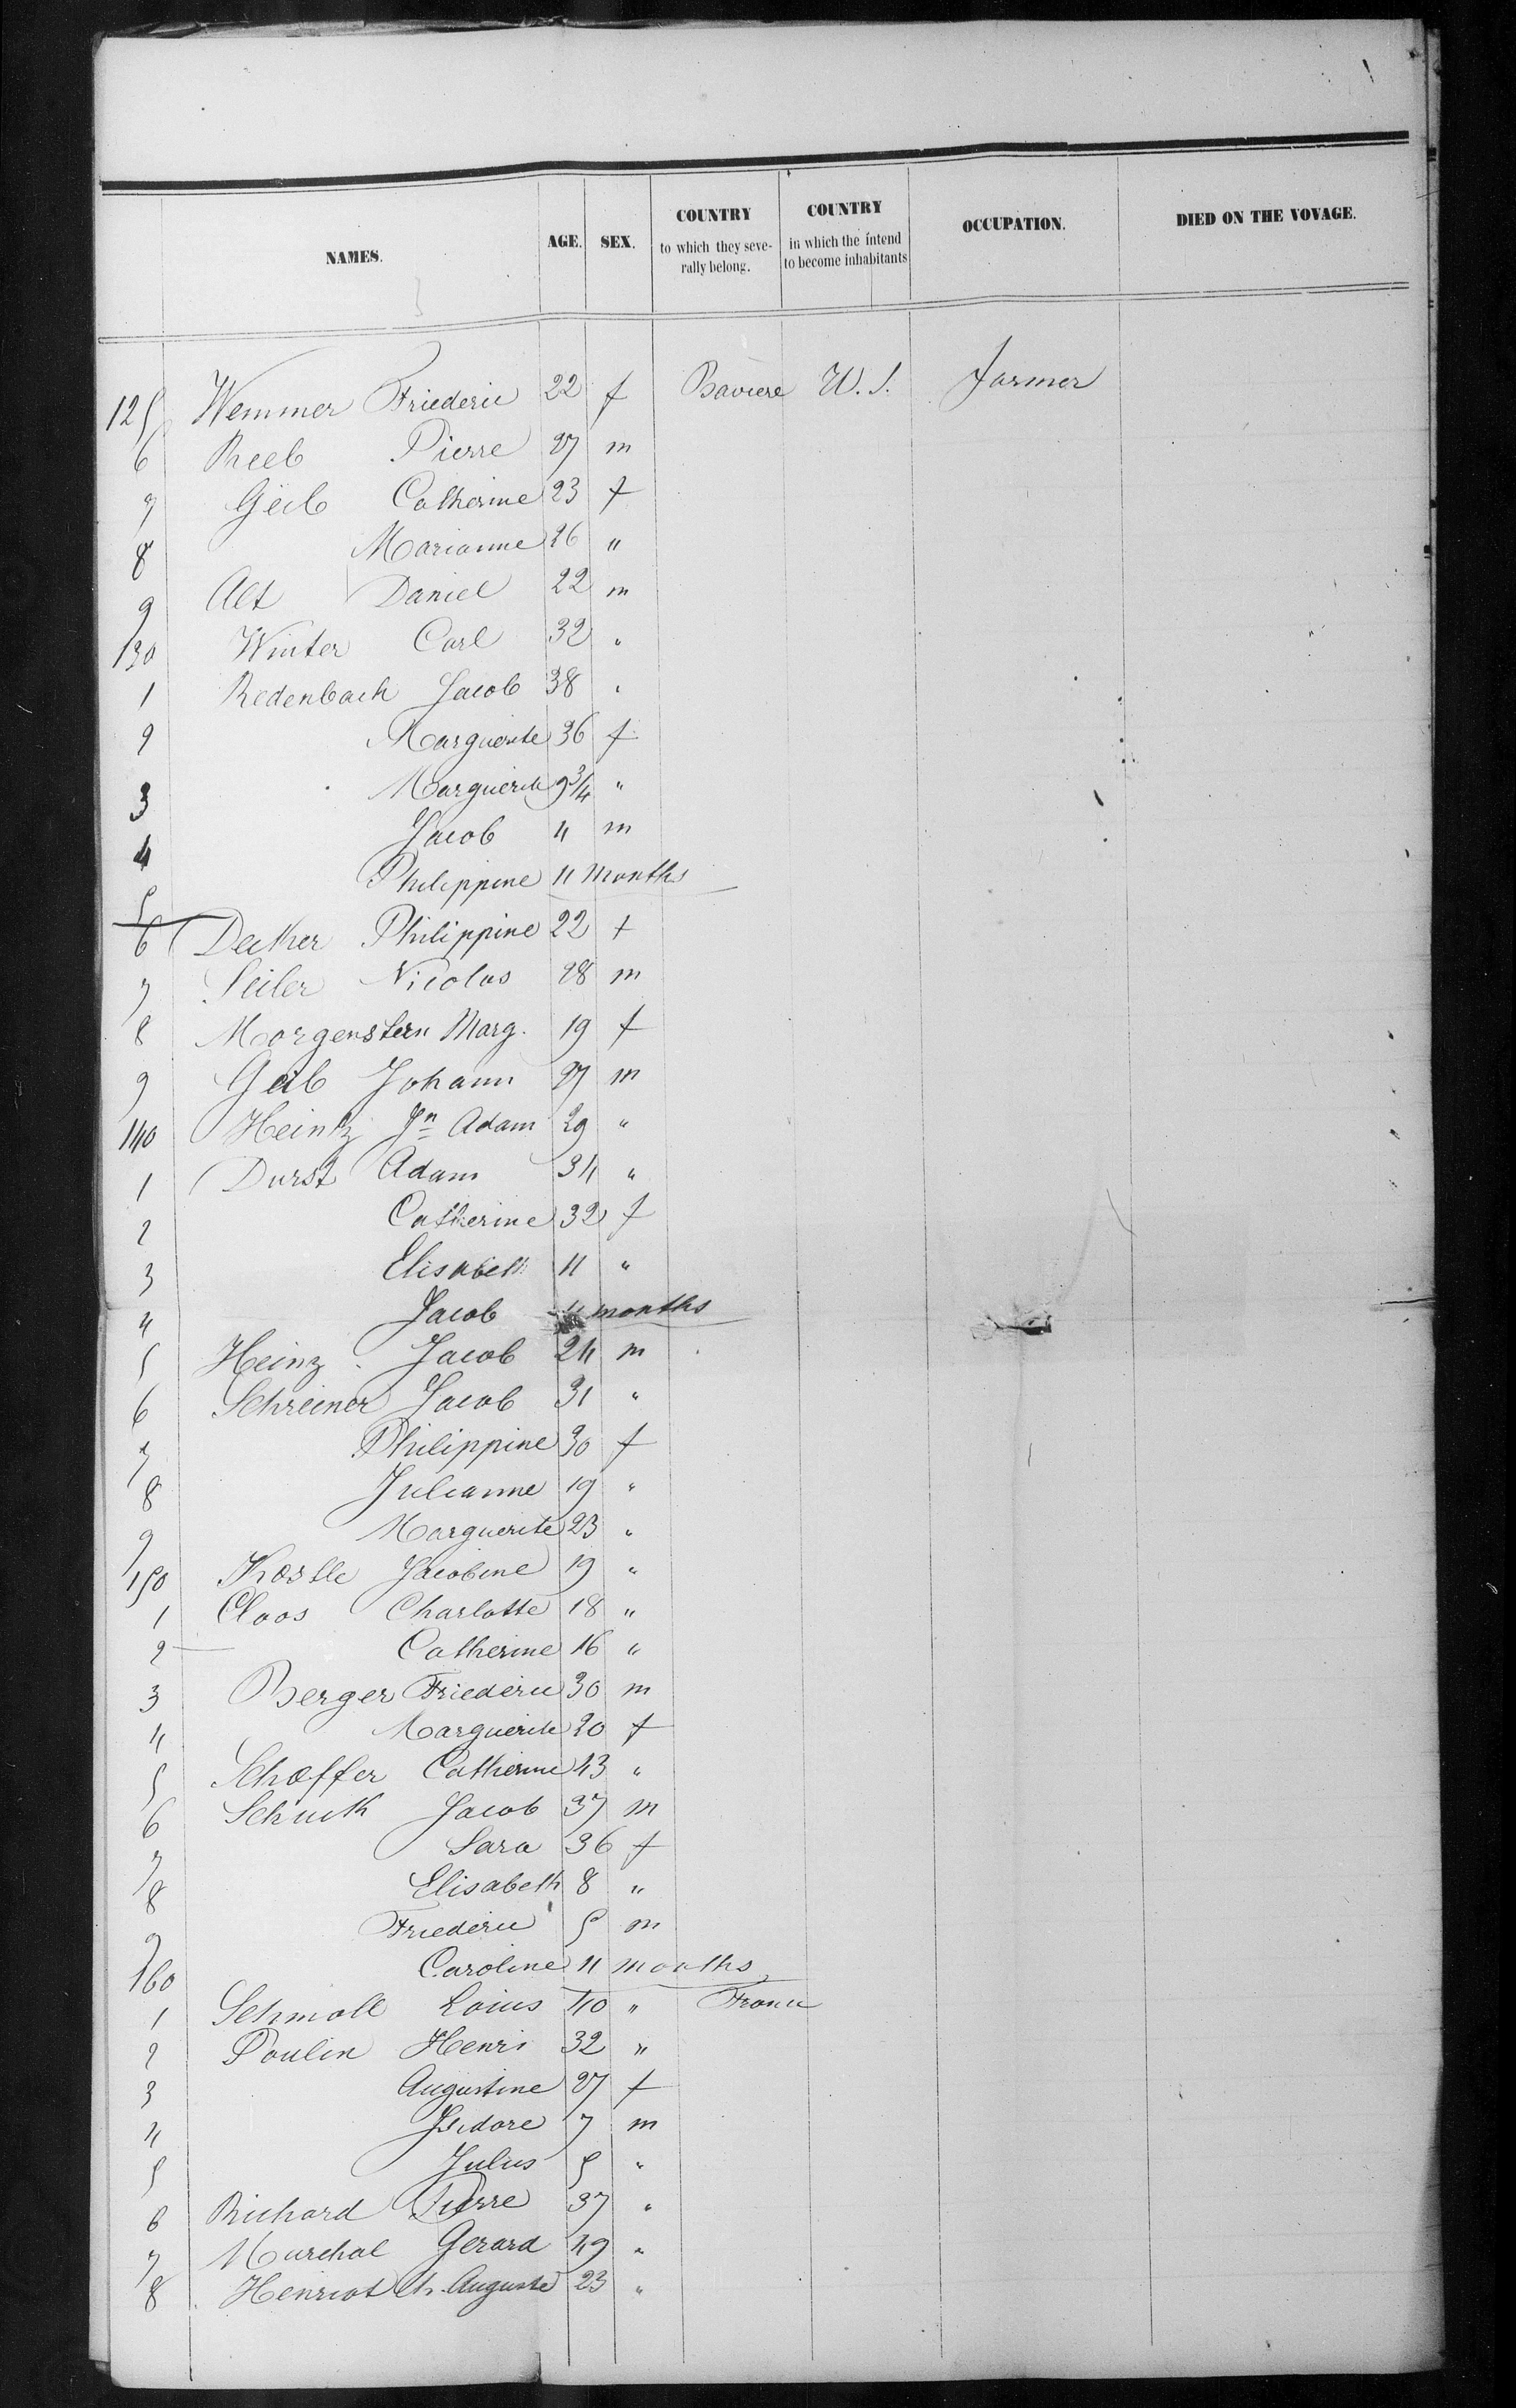 NAMES. AGE. SEX. COUNTRY to which they seve- rally belong. COUNTRY in which the intend to become inhabitants OCCUPATION. DIED ON THE VOVAGE.
125 Wemmer Friederic 22 f Baviere U.S. farmer
6 Reeb Pierre 27 m
7 Geib Catherine 23 f
8 Marianne 26 "
9 Alt Daniel 22 m
130 Winter Carl 32 "
1 Redenbach Jacob 38 "
2 Marguerite 36 f
3 Marguerite 9 3/4 "
4 Jacob 4 m
5 Philippine 11 months
6 Decker Philippine 22 f
7 Seiler Nicolas 28 m
8 Morgenstern Marg. 19 f
9 Geib Johann 27 m
140 Heintz Jn Adam 29 "
1 Durst Adam 34 "
2 Catherine 32 f
3 Elisabeth 4 "
4 Jacob months
5 Heinz Jacob 24 m
6 Schreiner Jacob 31 "
7 Philippine 30 f
8 Julianne 19 "
9 Marguerite 23 "
150 Kostle Jacobine 19 "
1 Cloos Charlotte 18 "
2 Catherine 16 "
3 Berger Friederic 30 m
4 Marguerite 20 f
5 Schoeffer Catherine 43 "
6 Schuck Jacob 37 m
7 Sara 36 f
8 Elisabeth 8 "
9 Friederic 5 m
160 Caroline 11 months
1 Schmoll Loius 40 " France
2 Poulin Henri 32 "
3 Augustine 27 f
4 Isidore 7 m
5 Julius 5 "
6 Richard Pierre 37 "
7 Marchal Gerard 49 "
8 Henriot Ch. Auguste 23 "